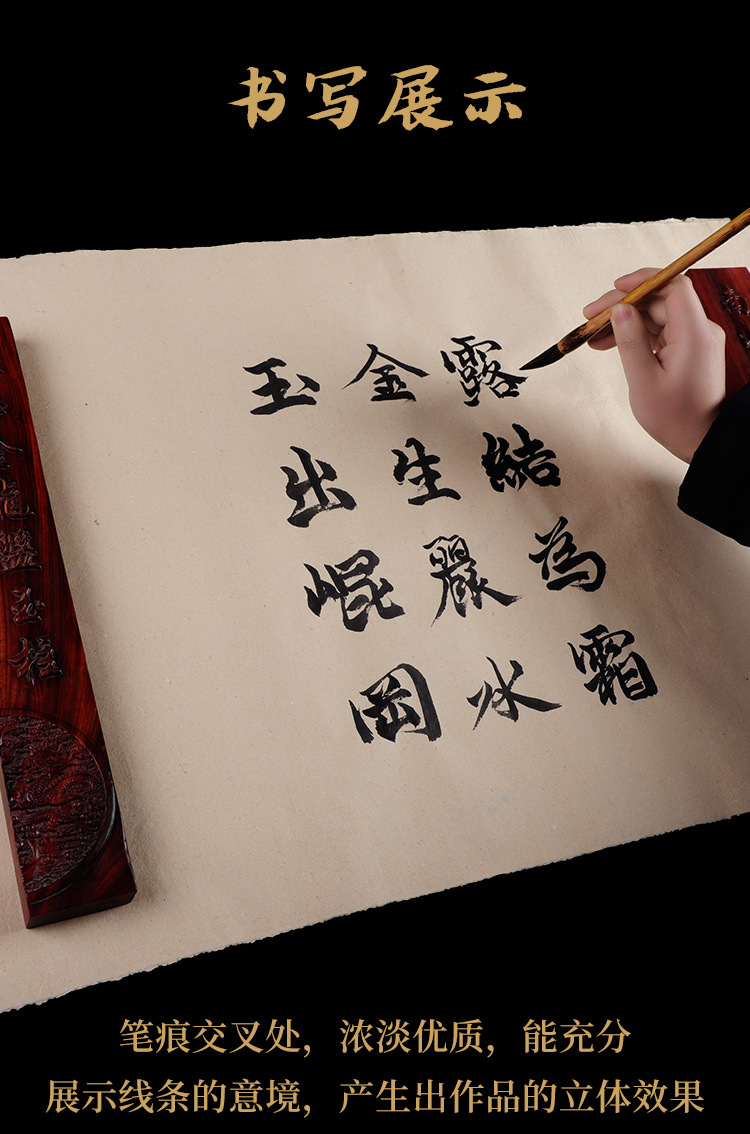 书写展示
露結為霜
金生麗水
玉出崐岡
笔痕交叉处，浓淡优质，能充分
展示线条的意境，产生出作品的立体效果